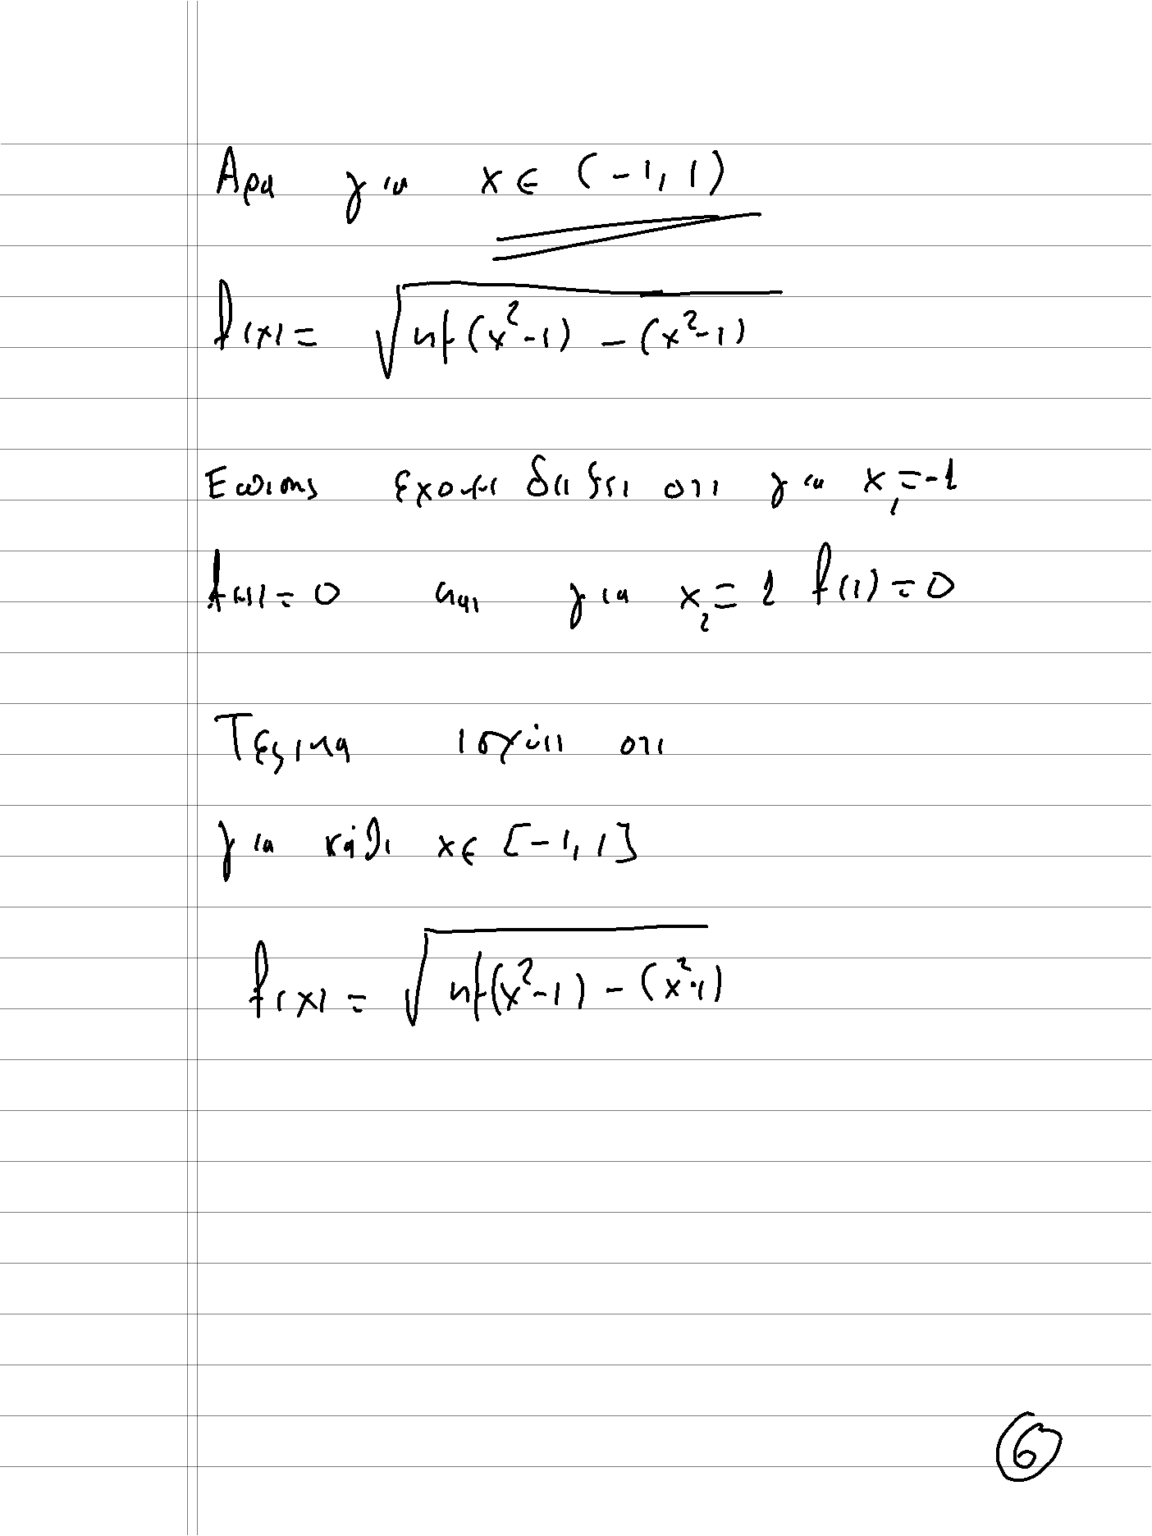 Αρα για x ∈ (-1, 1)
f(x) = √(ημ(x²-1) - (x²-1))
Επισης εχουμε δειξει οτι για x₁=-1
f(-1) = 0 και για x₂ = 1 f(1) = 0
Τεςικα ισχύει οτι
για κάθε x ∈ [-1, 1]
f(x) = √(ημ(x²-1) - (x²-1))
6